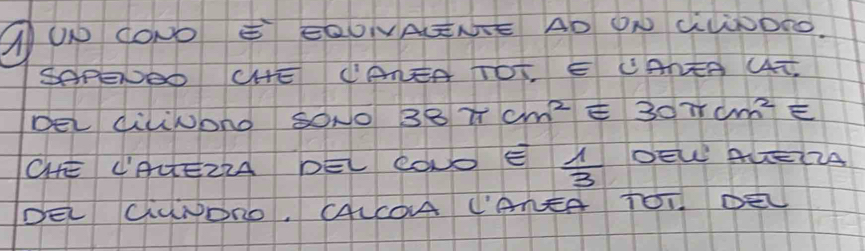 1) UN CONO È EQUIVALENTE AD UN CILINDRO.
SAPENDO CHE L'AREA TOT. E L'AREA LAT.
DEL CILINDRO SONO 38 π cm² E 30 π cm² E
CHE L'ALTEZZA DEL CONO È 1/3 DELL'ALTEZZA
DEL CILINDRO. CALCOLA L'AREA TOT. DEL